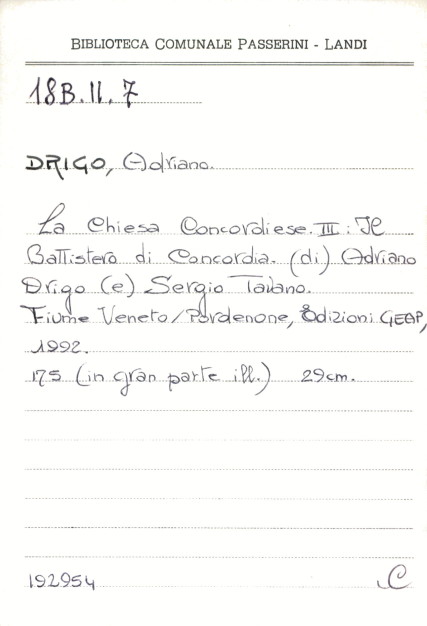 BIBLIOTECA COMUNALE PASSERINI - LANDI
18B.II.7
DRIGO, Adriano.
La Chiesa Concordiese. III: Il
Battistero di Concordia. (di) Adriano
Drigo (e) Sergio Tavano.
Fiume Veneto/Pordenone, Edizioni GEAP,
1992.
175 (in gran parte ill.) 29cm.
192954 C